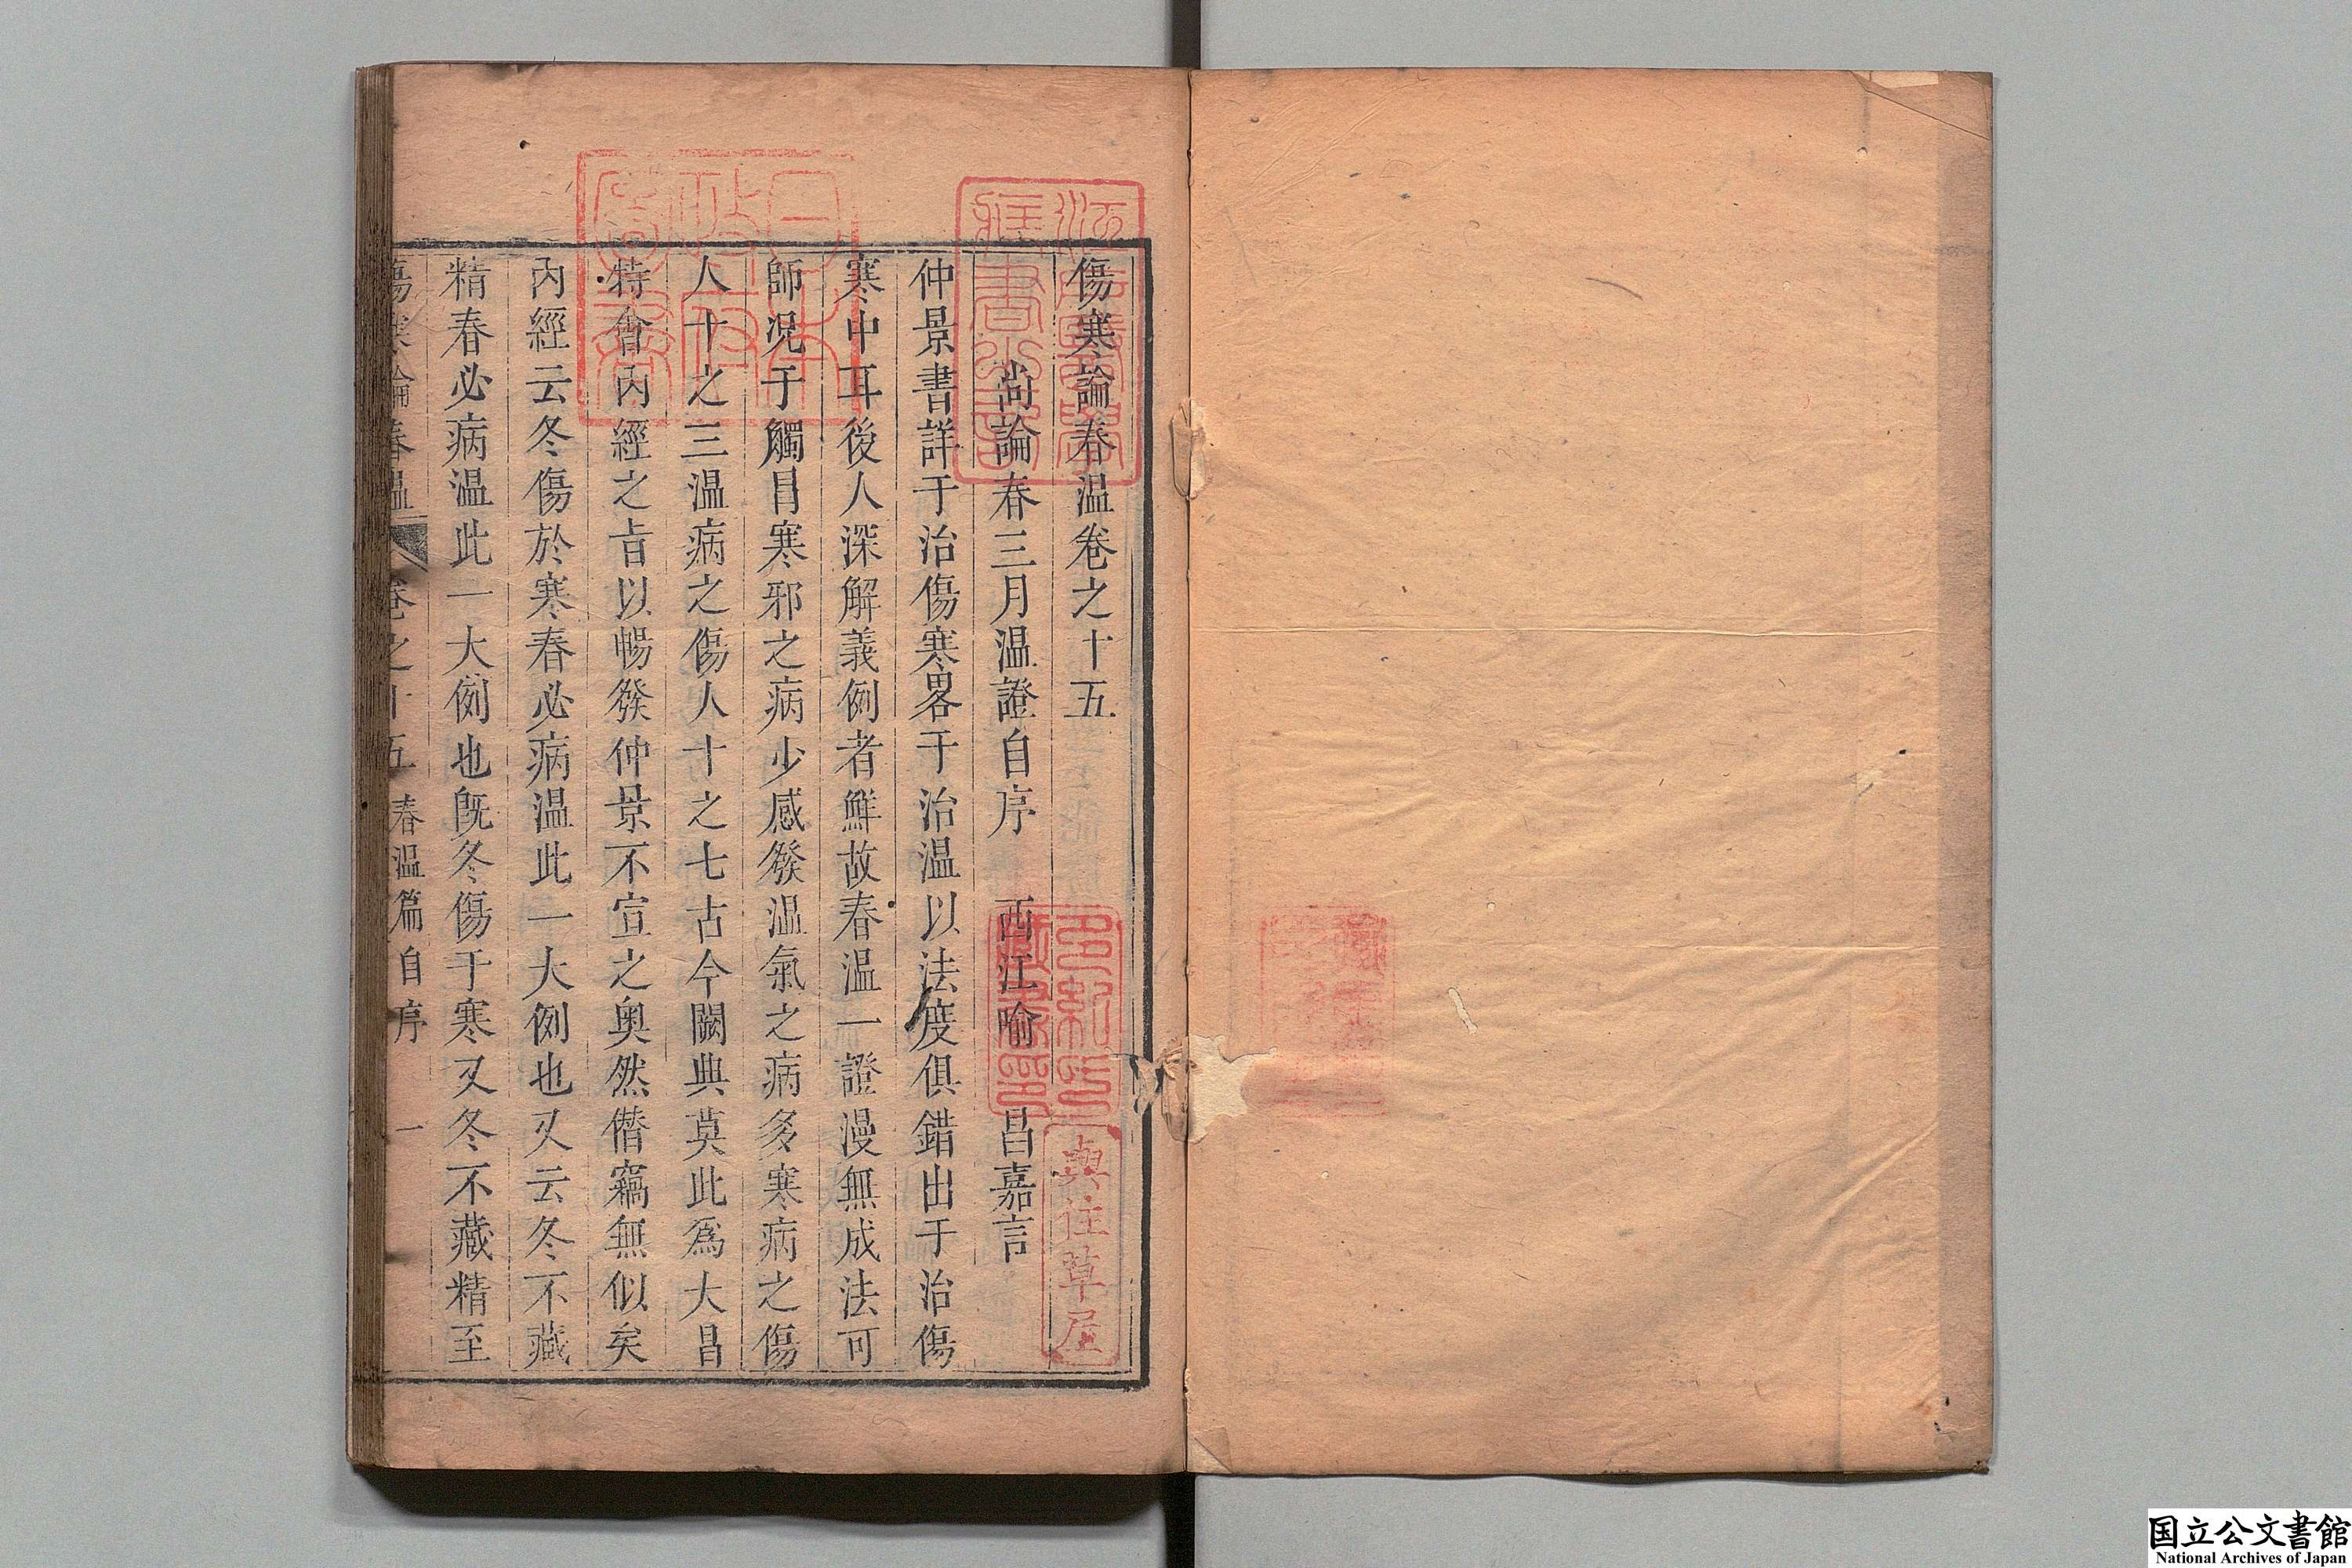 傷寒論春溫卷之十五
尚論春三月溫證自序 西江喻 昌嘉言
仲景書詳于治傷寒畧于治溫以法度俱錯出于治傷
寒中耳後人深解義例者鮮故春溫一證漫無成法可
師況于觸目寒邪之病少感發溫氣之病多寒病之傷
人十之三溫病之傷人十之七古今闕典莫此為大昌
特會內經之旨以暢發仲景不宣之奧然僭竊無似矣
內經云冬傷於寒春必病溫此一大例也又云冬不藏
精春必病溫此一大例也既冬傷于寒又冬不藏精至
傷寒論春溫 卷之十五 春溫篇自序 一
日本政府圖書
多紀氏藏書印
與住草屋
国立公文書館
National Archives of Japan